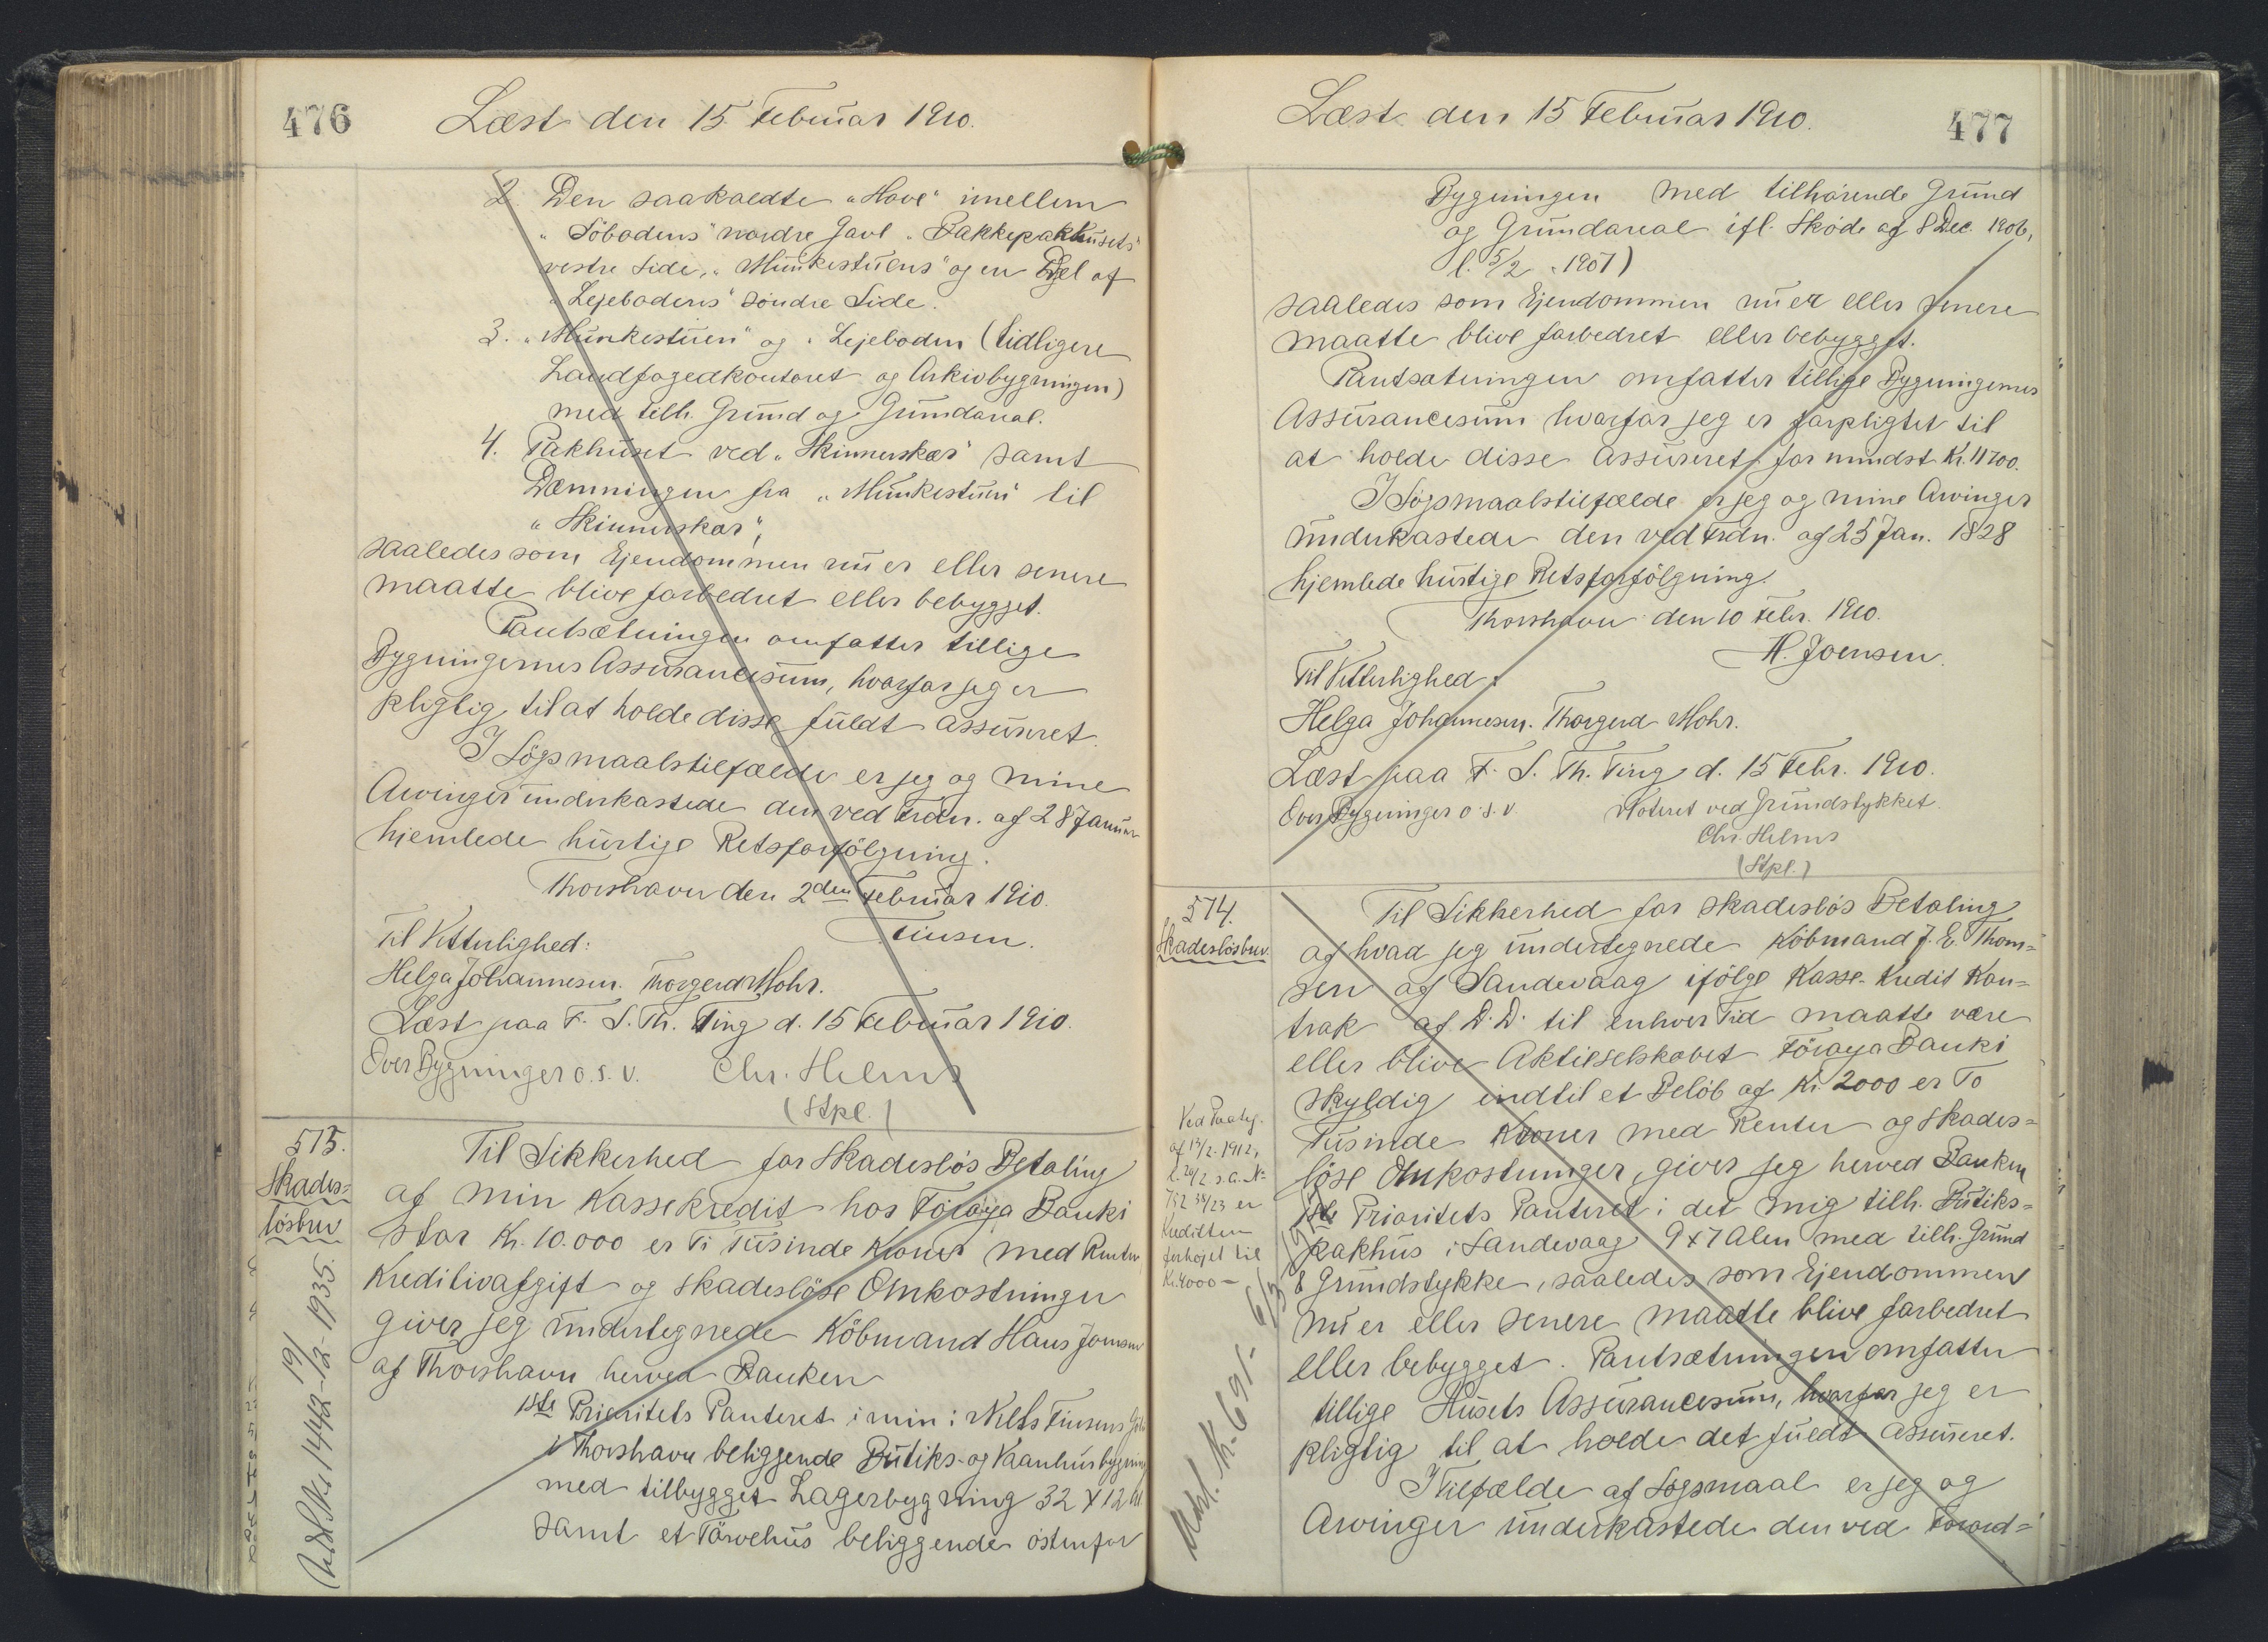 476
Læst den 15. Februar 1910.
2. Den saakaldte „Have" imellem
„Söbodens" nordre Gavl „Pakkepakhusets"
vestre Side, „Munkestuens" og en Del af
„Lejebodens" söndre Side.
3. „Munkestuen" og „Lejeboden (tidligere
Landfogedkontoret og Arkivbygningen)
med tilh. Grund og Grundareal.
4. Pakhuset ved „Skinnerskær" samt
Dæmningen fra „Munkestuen" til
„Skinnerskær",
saaledes som Ejendommen nu er eller senere
maatte blive forbedret eller bebygget.
Pantsætningen omfatter tillige
Bygningernes Assurancesum, hvorfor jeg er
pligtig til at holde disse fuldt assureret.
I Sögsmaalstilfælde er jeg og mine
Arvinger underkastede den ved Frdn. af 28 Januar
hjemlede hurtige Retsforfölgning.
Thorshavn den 2den Februar 1910.
Finsen.
Til Vitterlighed:
Helga Johannesen. Thorgerd Mohr.
Læst paa F. S. Th. Ting d. 15 Februar 1910.
Over Bygninger o. s. v. Chr. Helms
(Stpl.)
513.
Skades=
lösbrev
Til Sikkerhed for skadeslös Betaling
af min Kassekredit hos Föroya Banki
stor Kr. 10.000 er Ti Tusinde Kroner med Renter,
Kreditivafgift og skadeslöse Omkostninger
giver jeg undertegnede Köbmand Hans Joensen
af Thorshavn herved Banken
1ste Prioritets Panteret i min i Niels Finsens
i Thorshavn beliggende Butiks- og Vaanhusbygning
med tilbygget Lagerbygning 32 x 12 Al.
samt et Törvehus beliggende östenfor
1448 19/12 1935.
477
Læst den 15 Februar 1910.
Bygningen med tilhörende Grund
og Grundareal ifl. Sköde af 8 Dec. 1906,
l. 5/2 1907)
saaledes som Ejendommen nu er eller senere
maatte blive forbedret eller bebygget.
Pantsætningen omfatter tillige Bygningernes
Assurancesum hvorfor jeg er forpligtet til
at holde disse assureret for mindst Kr. 11700.
I Sögsmaalstilfælde er jeg og mine Arvinger
underkastede den ved Frdn. af 25 Jan. 1828
hjemlede hurtige Retsforfölgning.
Thorshavn den 10 Febr. 1910.
H. Joensen.
Til Vitterlighed:
Helga Johannesen. Thorgerd Mohr.
Læst paa F. S. Th. Ting d. 15 Febr. 1910.
Over Bygninger o. s. v. Noteret ved Grundstykket.
Chr. Helms
(Stpl.)
514.
Skadeslösbrev.
Til Sikkerhed for skadeslös Betaling
af hvad jeg undertegnede Köbmand J. E. Thom=
sen af Sandevaag ifölge Kasse-Kredit Kon=
trak af D. D. til enhver Tid maatte være
eller blive Aktieselskabet Föroya Banki
skyldig indtil et Belöb af Kr. 2000 er To
Tusinde Kroner med Renter og skades=
löse Omkostninger, giver jeg herved Banken
1ste Prioritets Panteret i det mig tilh. Butiks=
pakhus i Sandevaag 9 x 7 Alen med tilh. Grund
& Grundstykke, saaledes som Ejendommen
nu er eller senere maatte blive forbedret
eller bebygget. Pantsætningen omfatter
tillige Husets Assurancesum, hvorfor jeg er
pligtig til at holde det fuldt assureret.
I Tilfælde af Sögsmaal er jeg og
Arvinger underkastede den ved Forord=
Ved Paateg.
af 13/2 1912,
l. 20/2 s. a. N=
er
Kreditten
forhöjet til
Kr. 4000 -